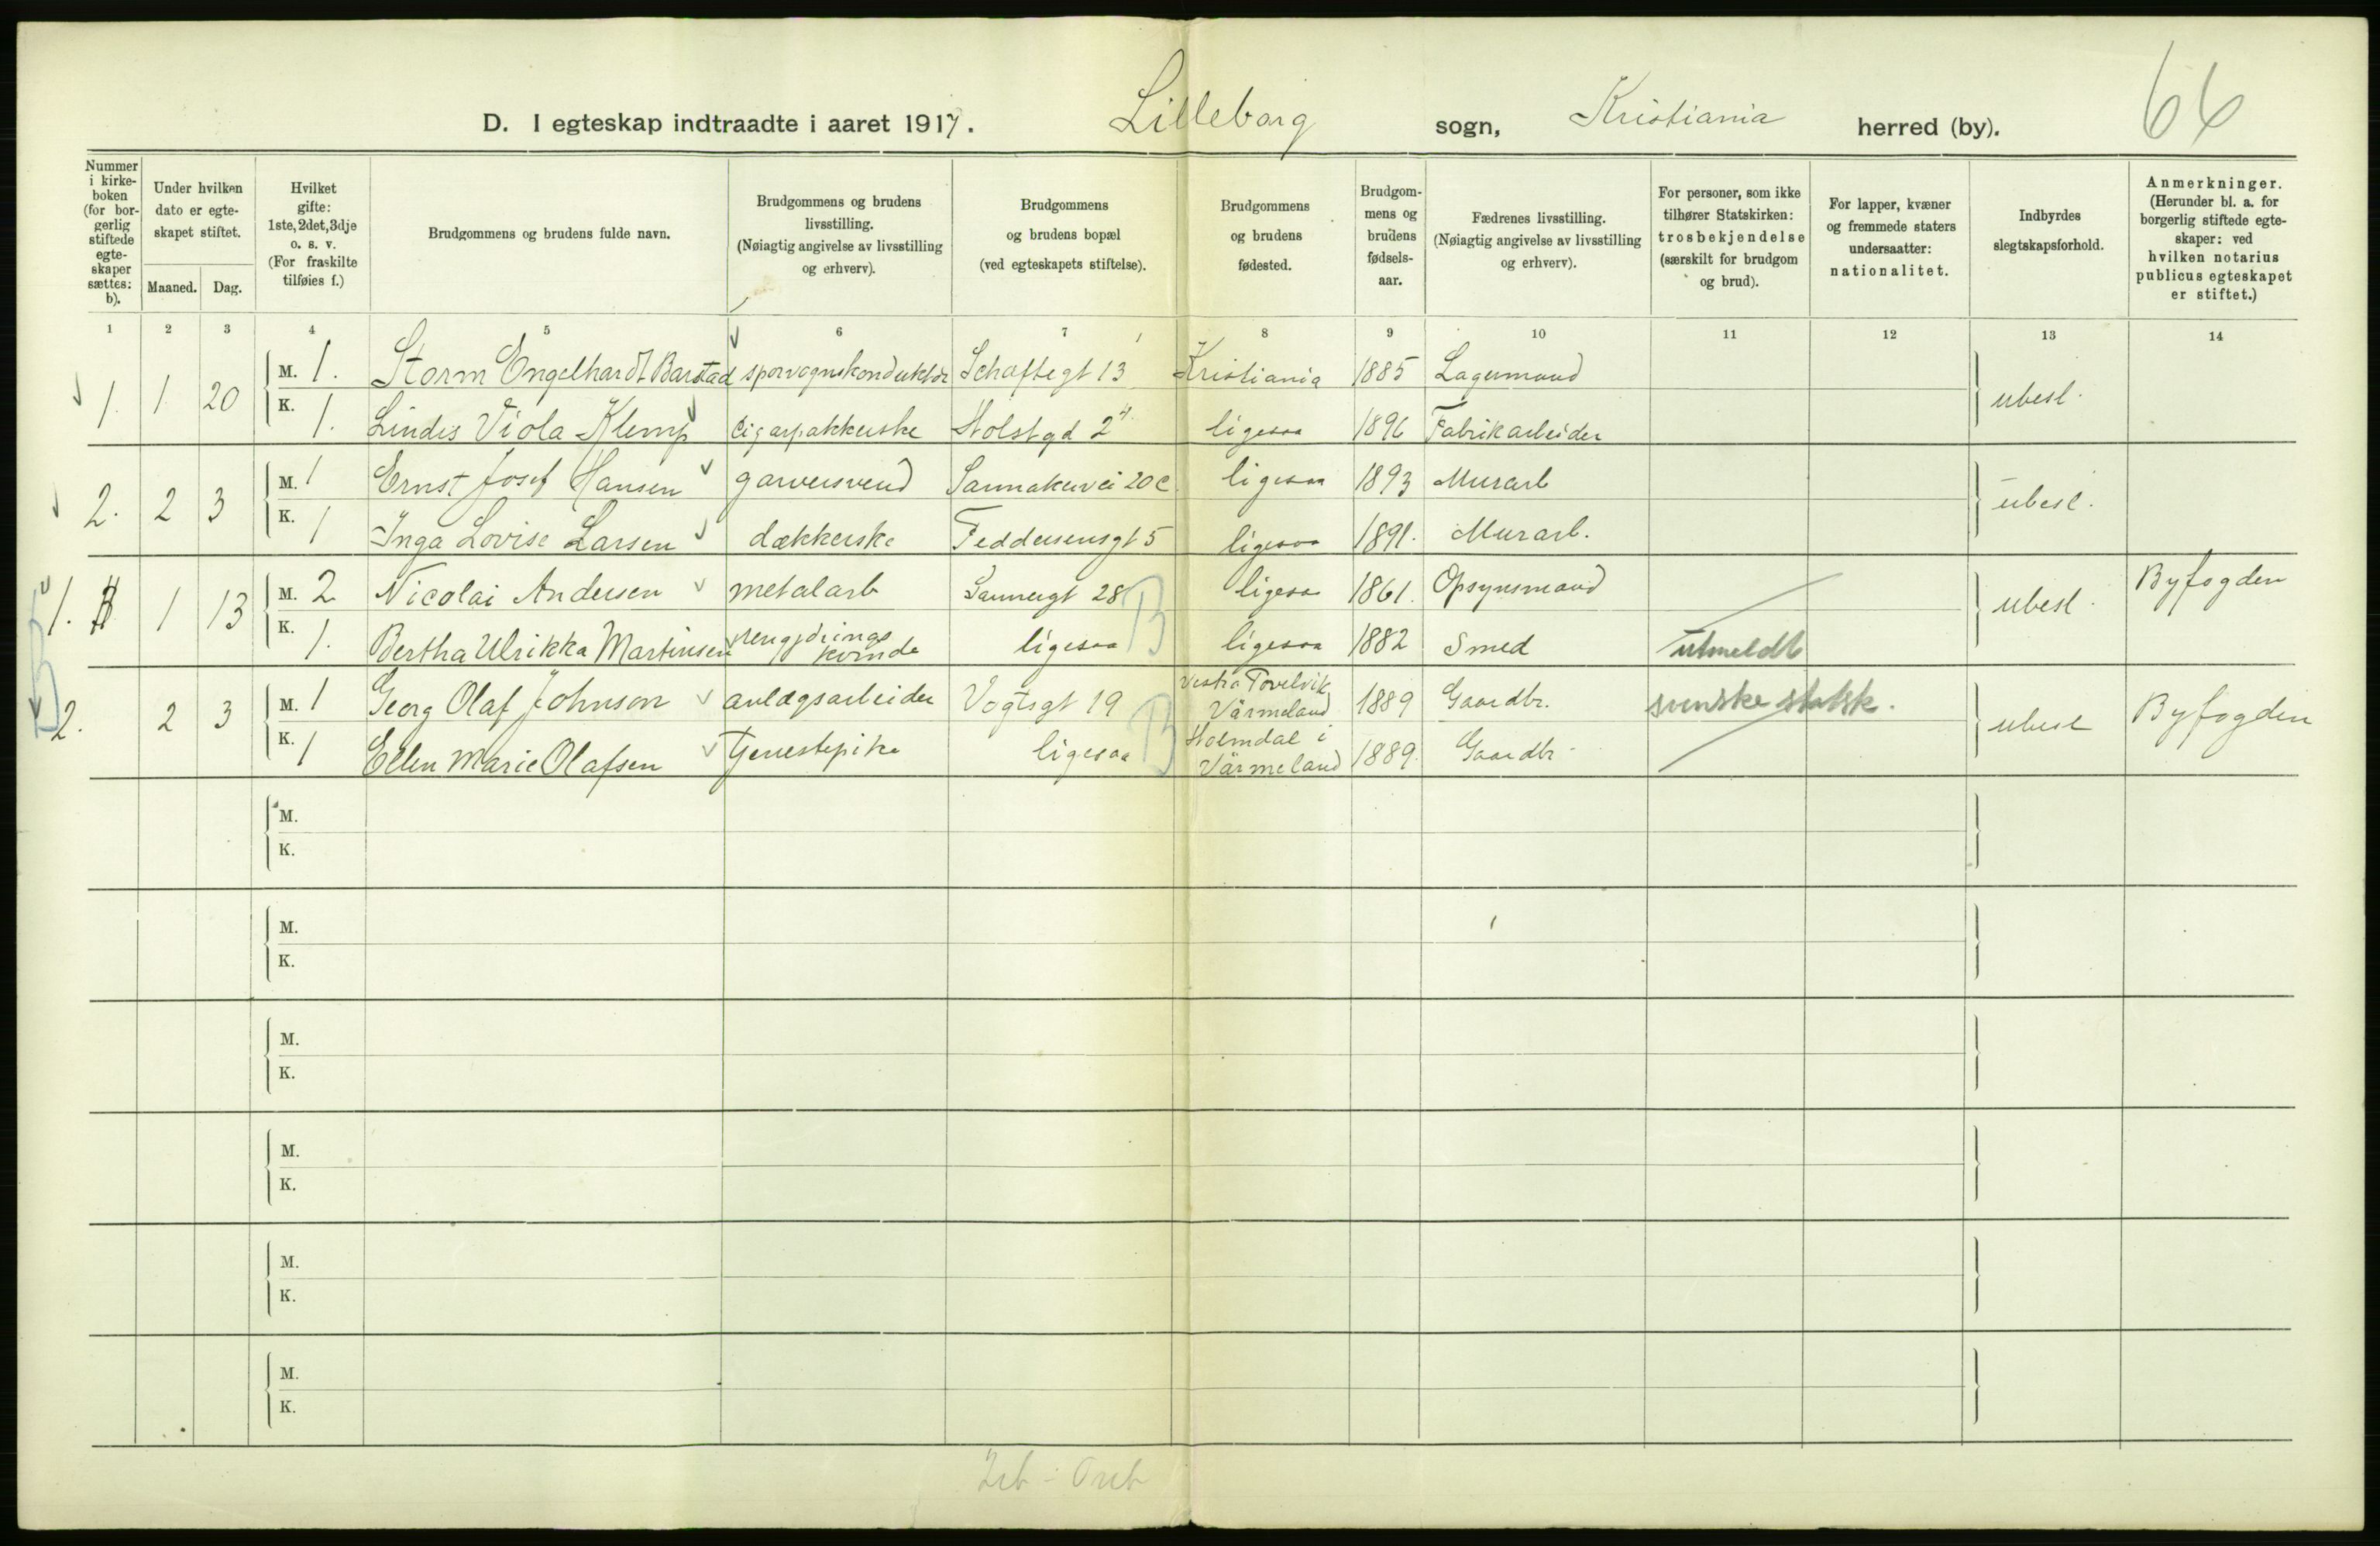 D. I egteskap indtraadte i aaret 1917. Lilleborg sogn, Kristiania herred (by). 66
Nummer i kirke-boken (for bor-gerlig stiftede egte-skaper sættes: b).
Under hvilken dato er egte-skapet stiftet.
Maaned. Dag.
Hvilket gifte: 1ste, 2det, 3dje o. s. v. (For fraskilte tilføies f.)
Brudgommens og brudens fulde navn.
Brudgommens og brudens livsstilling. (Nøiagtig angivelse av livsstilling og erhverv).
Brudgommens og brudens bopæl (ved egteskapets stiftelse).
Brudgommens og brudens fødested.
Brudgom-mens og brudens fødsels-aar.
Fædrenes livsstilling. (Nøiagtig angivelse av livsstilling og erhverv).
For personer, som ikke tilhører Statskirken: trosbekjendelse (særskilt for brudgom og brud).
For lapper, kvæner og fremmede staters undersaatter: nationalitet.
Indbyrdes slegtskapsforhold.
Anmerkninger. (Herunder bl. a. for borgerlig stiftede egte-skaper: ved hvilken notarius publicus egteskapet er stiftet.)
1 2 3 4 5 6 7 8 9 10 11 12 13 14
1. 1 20 M. 1. Storm Engelhardt Barstad sporvognskonduktør Schaftegt 13 Kristiania 1885 Lagermand ubesl.
K. 1. Lindis Viola Klemp Cigarpakkerske Holstgd 2 ligesaa 1896 Fabrikarbeider
2. 2 3 M. 1 Ernst Josef Hansen garversvend Sannakervei 20c ligesaa 1893 Murarb ubesl.
K. 1 Inga Lovise Larsen dækkerske Feddersensgt 5 ligesaa 1891. Murarb.
1. 1 13 M. 2 Nicolai Andersen metalarb Sannergt 28 B ligesaa 1861. Opsynsmand ubesl. Byfogden
K. 1. Bertha Ulrikka Martinsen rengjørings kvinde ligesaa ligesaa 1882 Smed utmeldt
2. 2 3 M. 1 Georg Olaf Johnson anlægsarbeider Vogtsgt 19 B Vestra Värmeland 1889 Gaardbr. svenske statsk. ubesl Byfogden
K. 1 Ellen Marie Olafsen tjenestepike ligesaa Holmdal i Värmeland 1889. Gaardbr
M.
K.
M.
K.
M.
K.
M.
K.
M.
K.
M.
K.